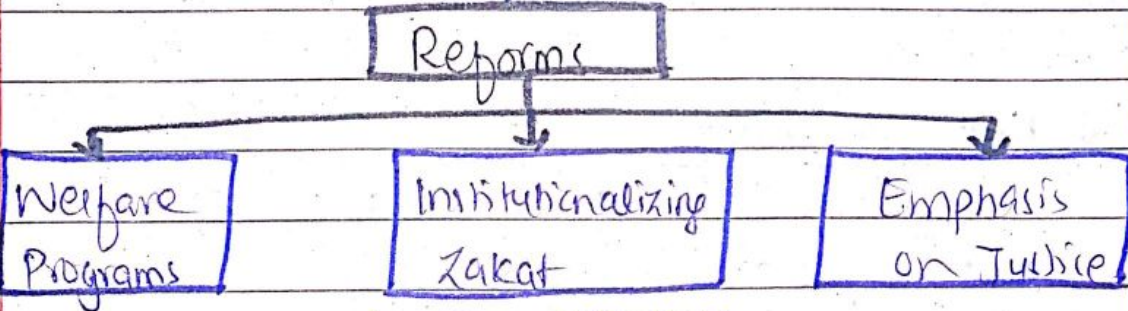 Reforms
Welfare
Programs
Institutionalizing
Zakat
Emphasis
on Justice